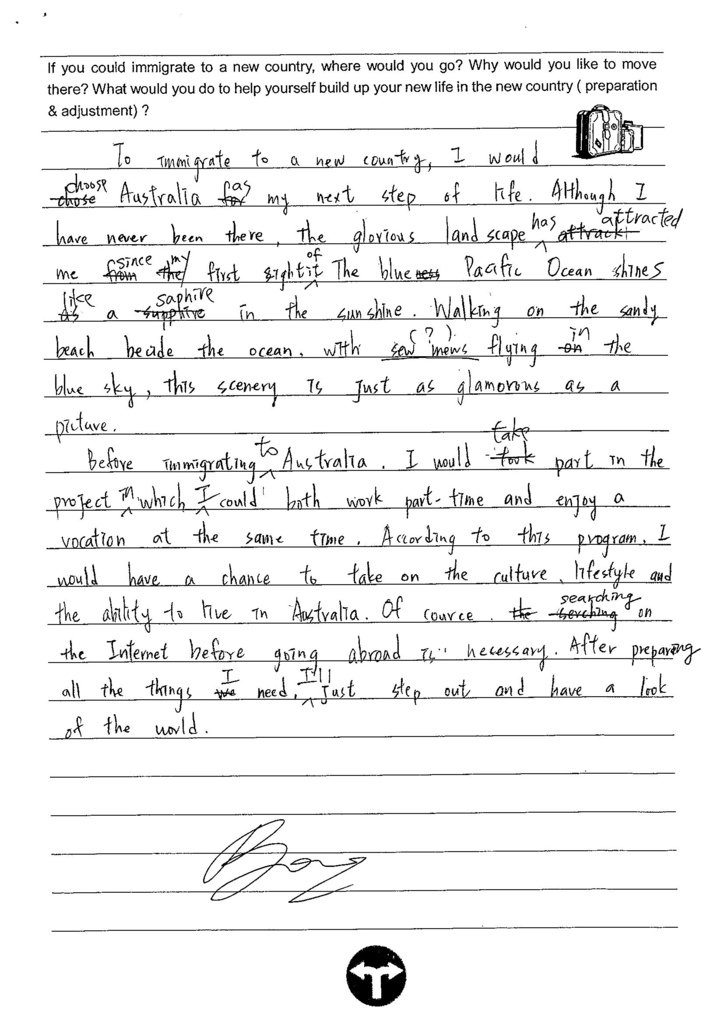 If you could immigrate to a new country, where would you go? Why would you like to move
there? What would you do to help yourself build up your new life in the new country ( preparation
& adjustment) ?
To immigrate to a new country, I would
choose
chose Australia for as my next step of life. Although I
have never been there, the glorious landscape has attract attracted
me from since the my first sight of it. The blueness Pacific Ocean shines
like
as a supphire saphire in the sunshine. Walking on the sandy
beach becide the ocean, with sew mews (?) flying on in the
blue sky, this scenery is just as glamorous as a
picture.
Before immigrating to Australia, I would took take part in the
project in which I could both work part-time and enjoy a
vocation at the same time. According to this program, I
would have a chance to take on the culture, lifestyle and
the ability to live in Australia. Of cource, the serching searching on
the Internet before going abroad is necessary. After preparing
all the things we I need, I'll just step out and have a look
of the world.